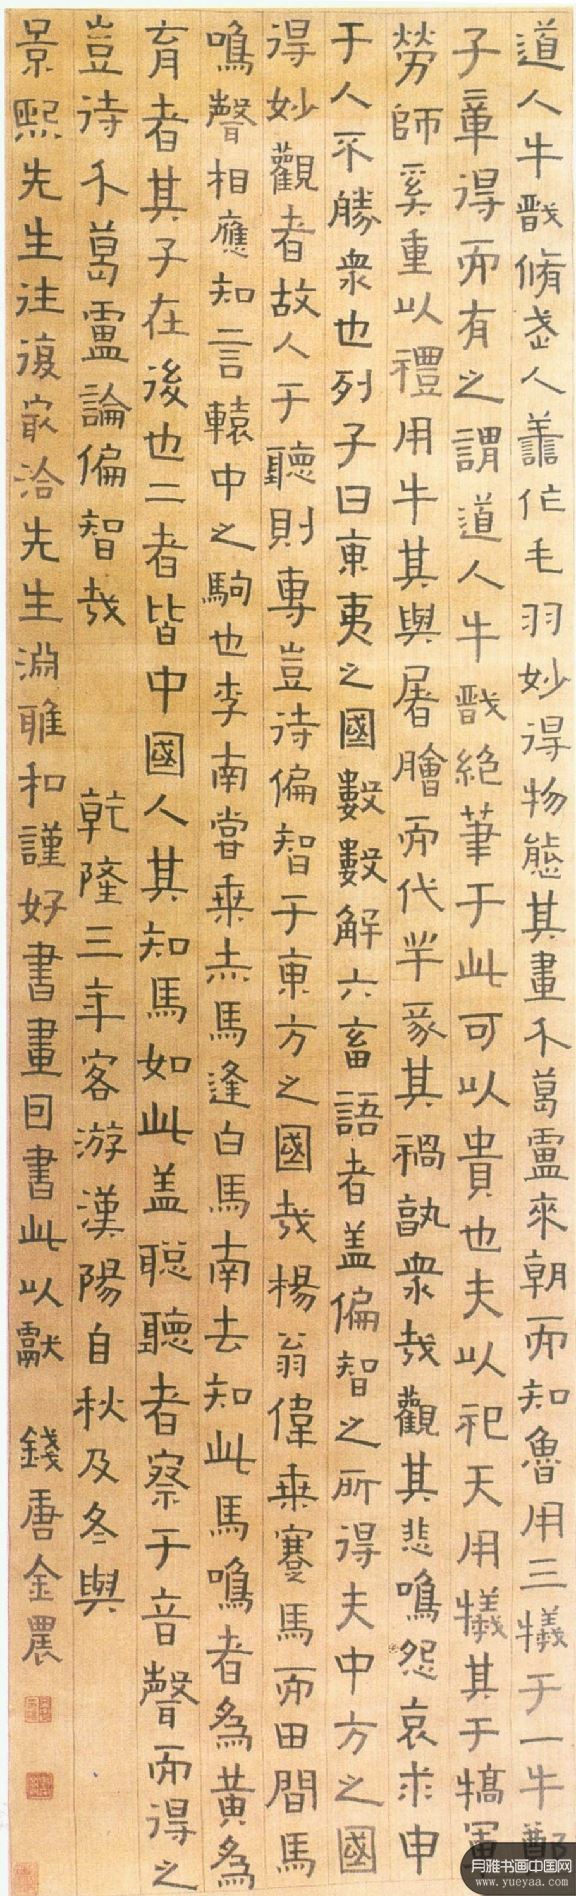 道人牛戬脩武人離作毛羽妙得物態其畫介葛盧來朝而知魯用三犧于一牛鄱
子章得而有之謂道人牛戬絕筆于此可以貴也夫以祀天用犧其于犒軍
勞師奚重以禮用牛其與屠膾而代羊豕其禍孰衆哉觀其悲鳴怨哀求申
于人不勝衆也列子曰東夷之國數數解六畜語者盖偏智之所得夫中方之國
得妙觀者故人于聽則專豈待偏智于東方之國哉楊翁偉乘蹇馬而田間馬
鳴聲相應知言轅中之駒也李南嘗乘赤馬逢白馬南去知此馬鳴者為黃為
育者其子在後也二者皆中國人其知馬如此盖聡聽者察于音聲而得之
豈待介葛盧論偏智哉
乾隆三年客游漢陽自秋及冬與
景熙先生往復㝡洽先生淵雅和謹好書畫因書此以獻 錢唐金農
月雅书画中国网
www.yueyaa.com